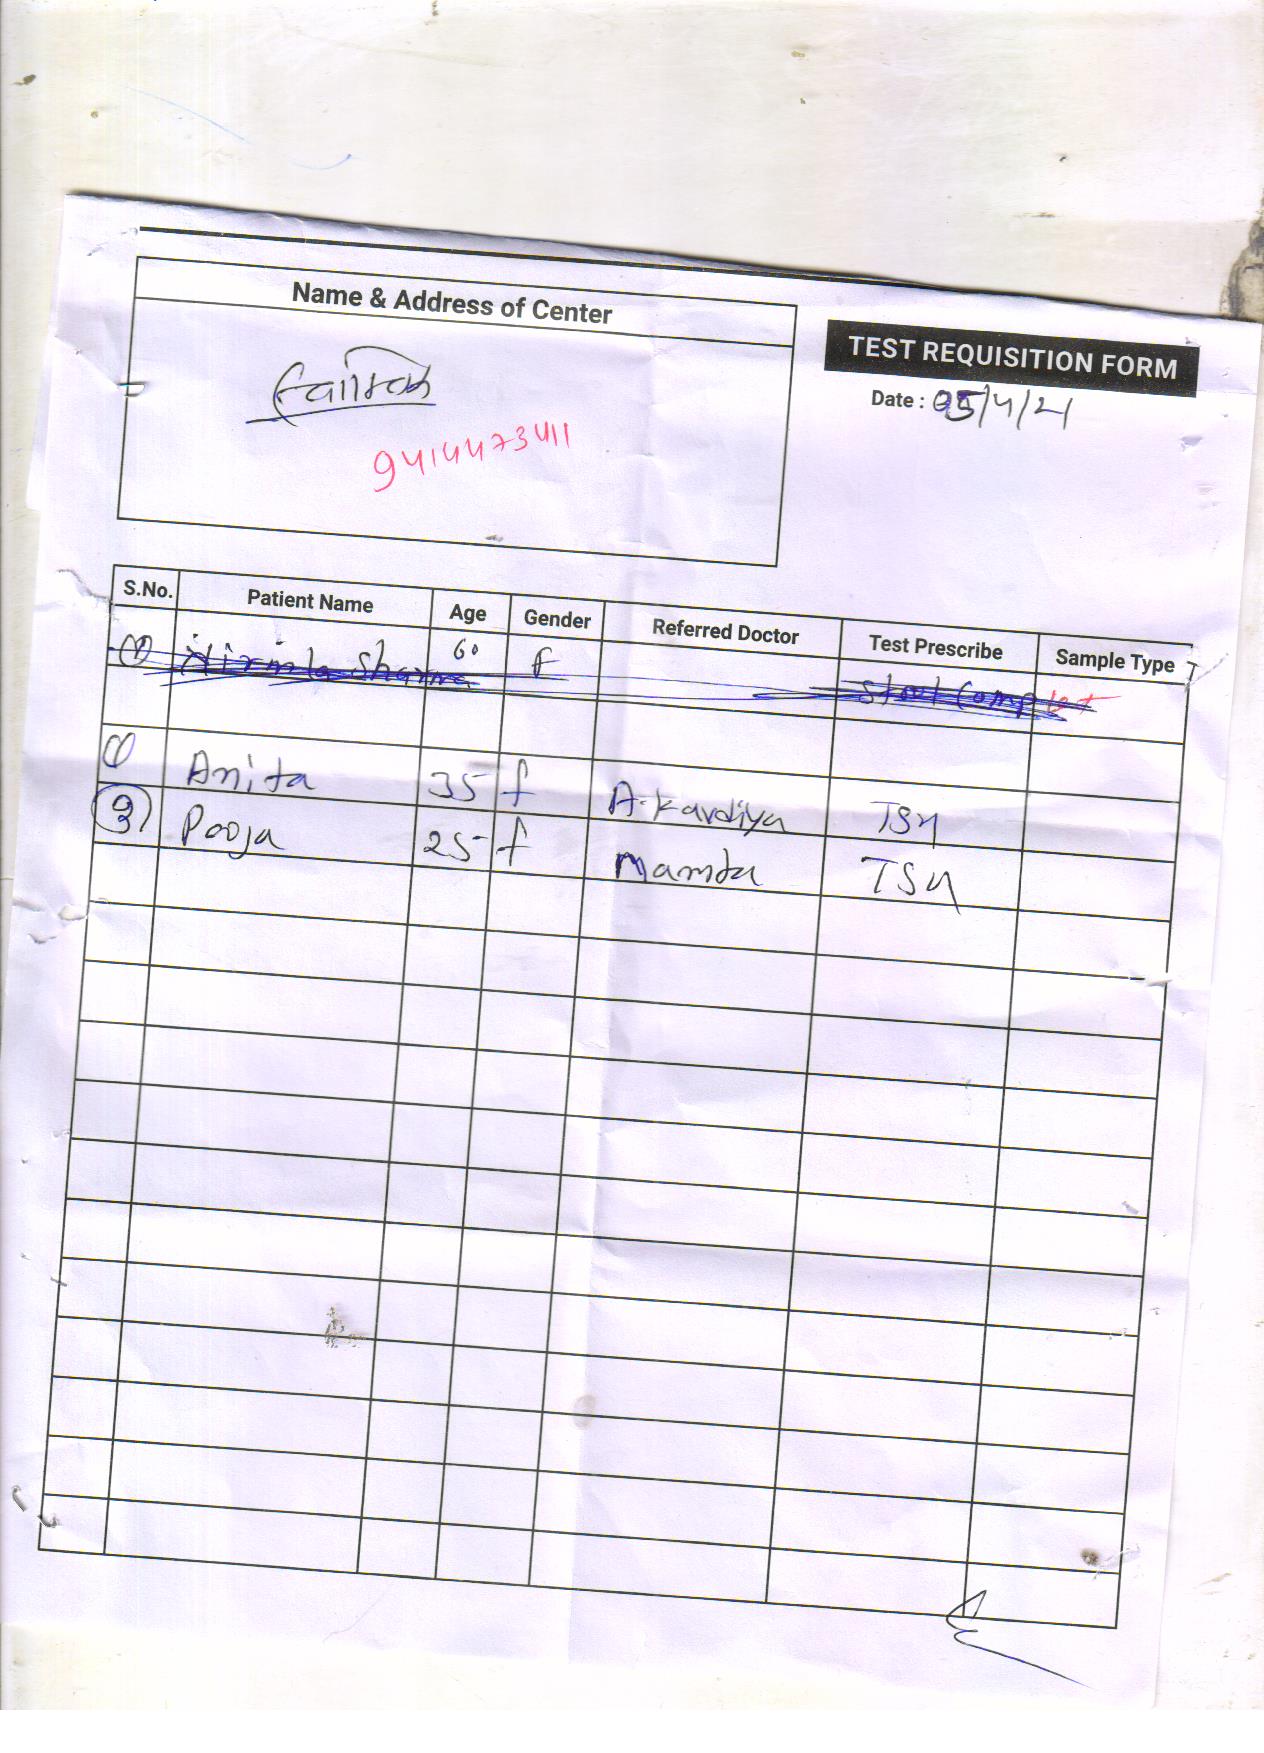 Name & Address of Center
9414473411
TEST REQUISITION FORM
Date : 05/4/21
S.No. Patient Name Age Gender Referred Doctor Test Prescribe Sample Type
① Nirmla Sharma 60 F Stool Complet
① Anita 35 f A. Kavdiya TSH
3) Pooja 25 f Mamta TSH